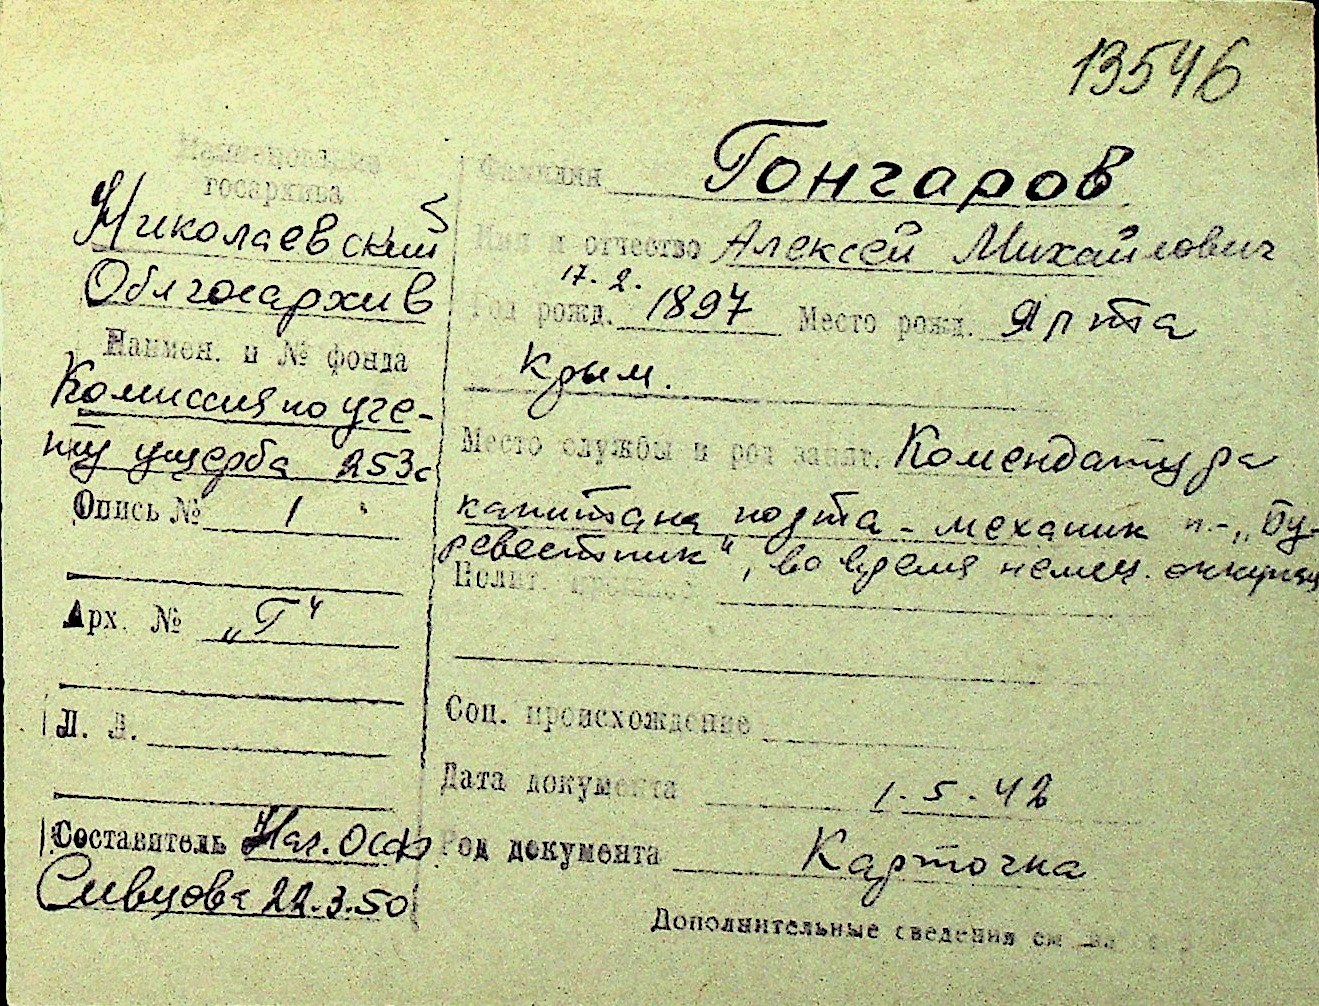 13546
Наименование
госархива
Николаевский
Облгосархив
Наимен. и № фонда
Комиссия по уче-
ту ущерба 253с
Опись № 1
Арх. № „Г“
Л. Л.
Составитель Нач. ОСФ
Сивцова 22.3.50
Фамилия Гончаров
Имя и отчество Алексей Михайлович
17. 2.
Год рожд. 1897 Место рожд. Ялта
Крым.
Место службы и род занят. Комендатура
капитана порта - механик п-„Бу-
ревестник“, во время немец. оккупац
Полит.
Соц. происхождение
Дата документа 1.5.42
Род документа Карточка
Дополнительные сведения см